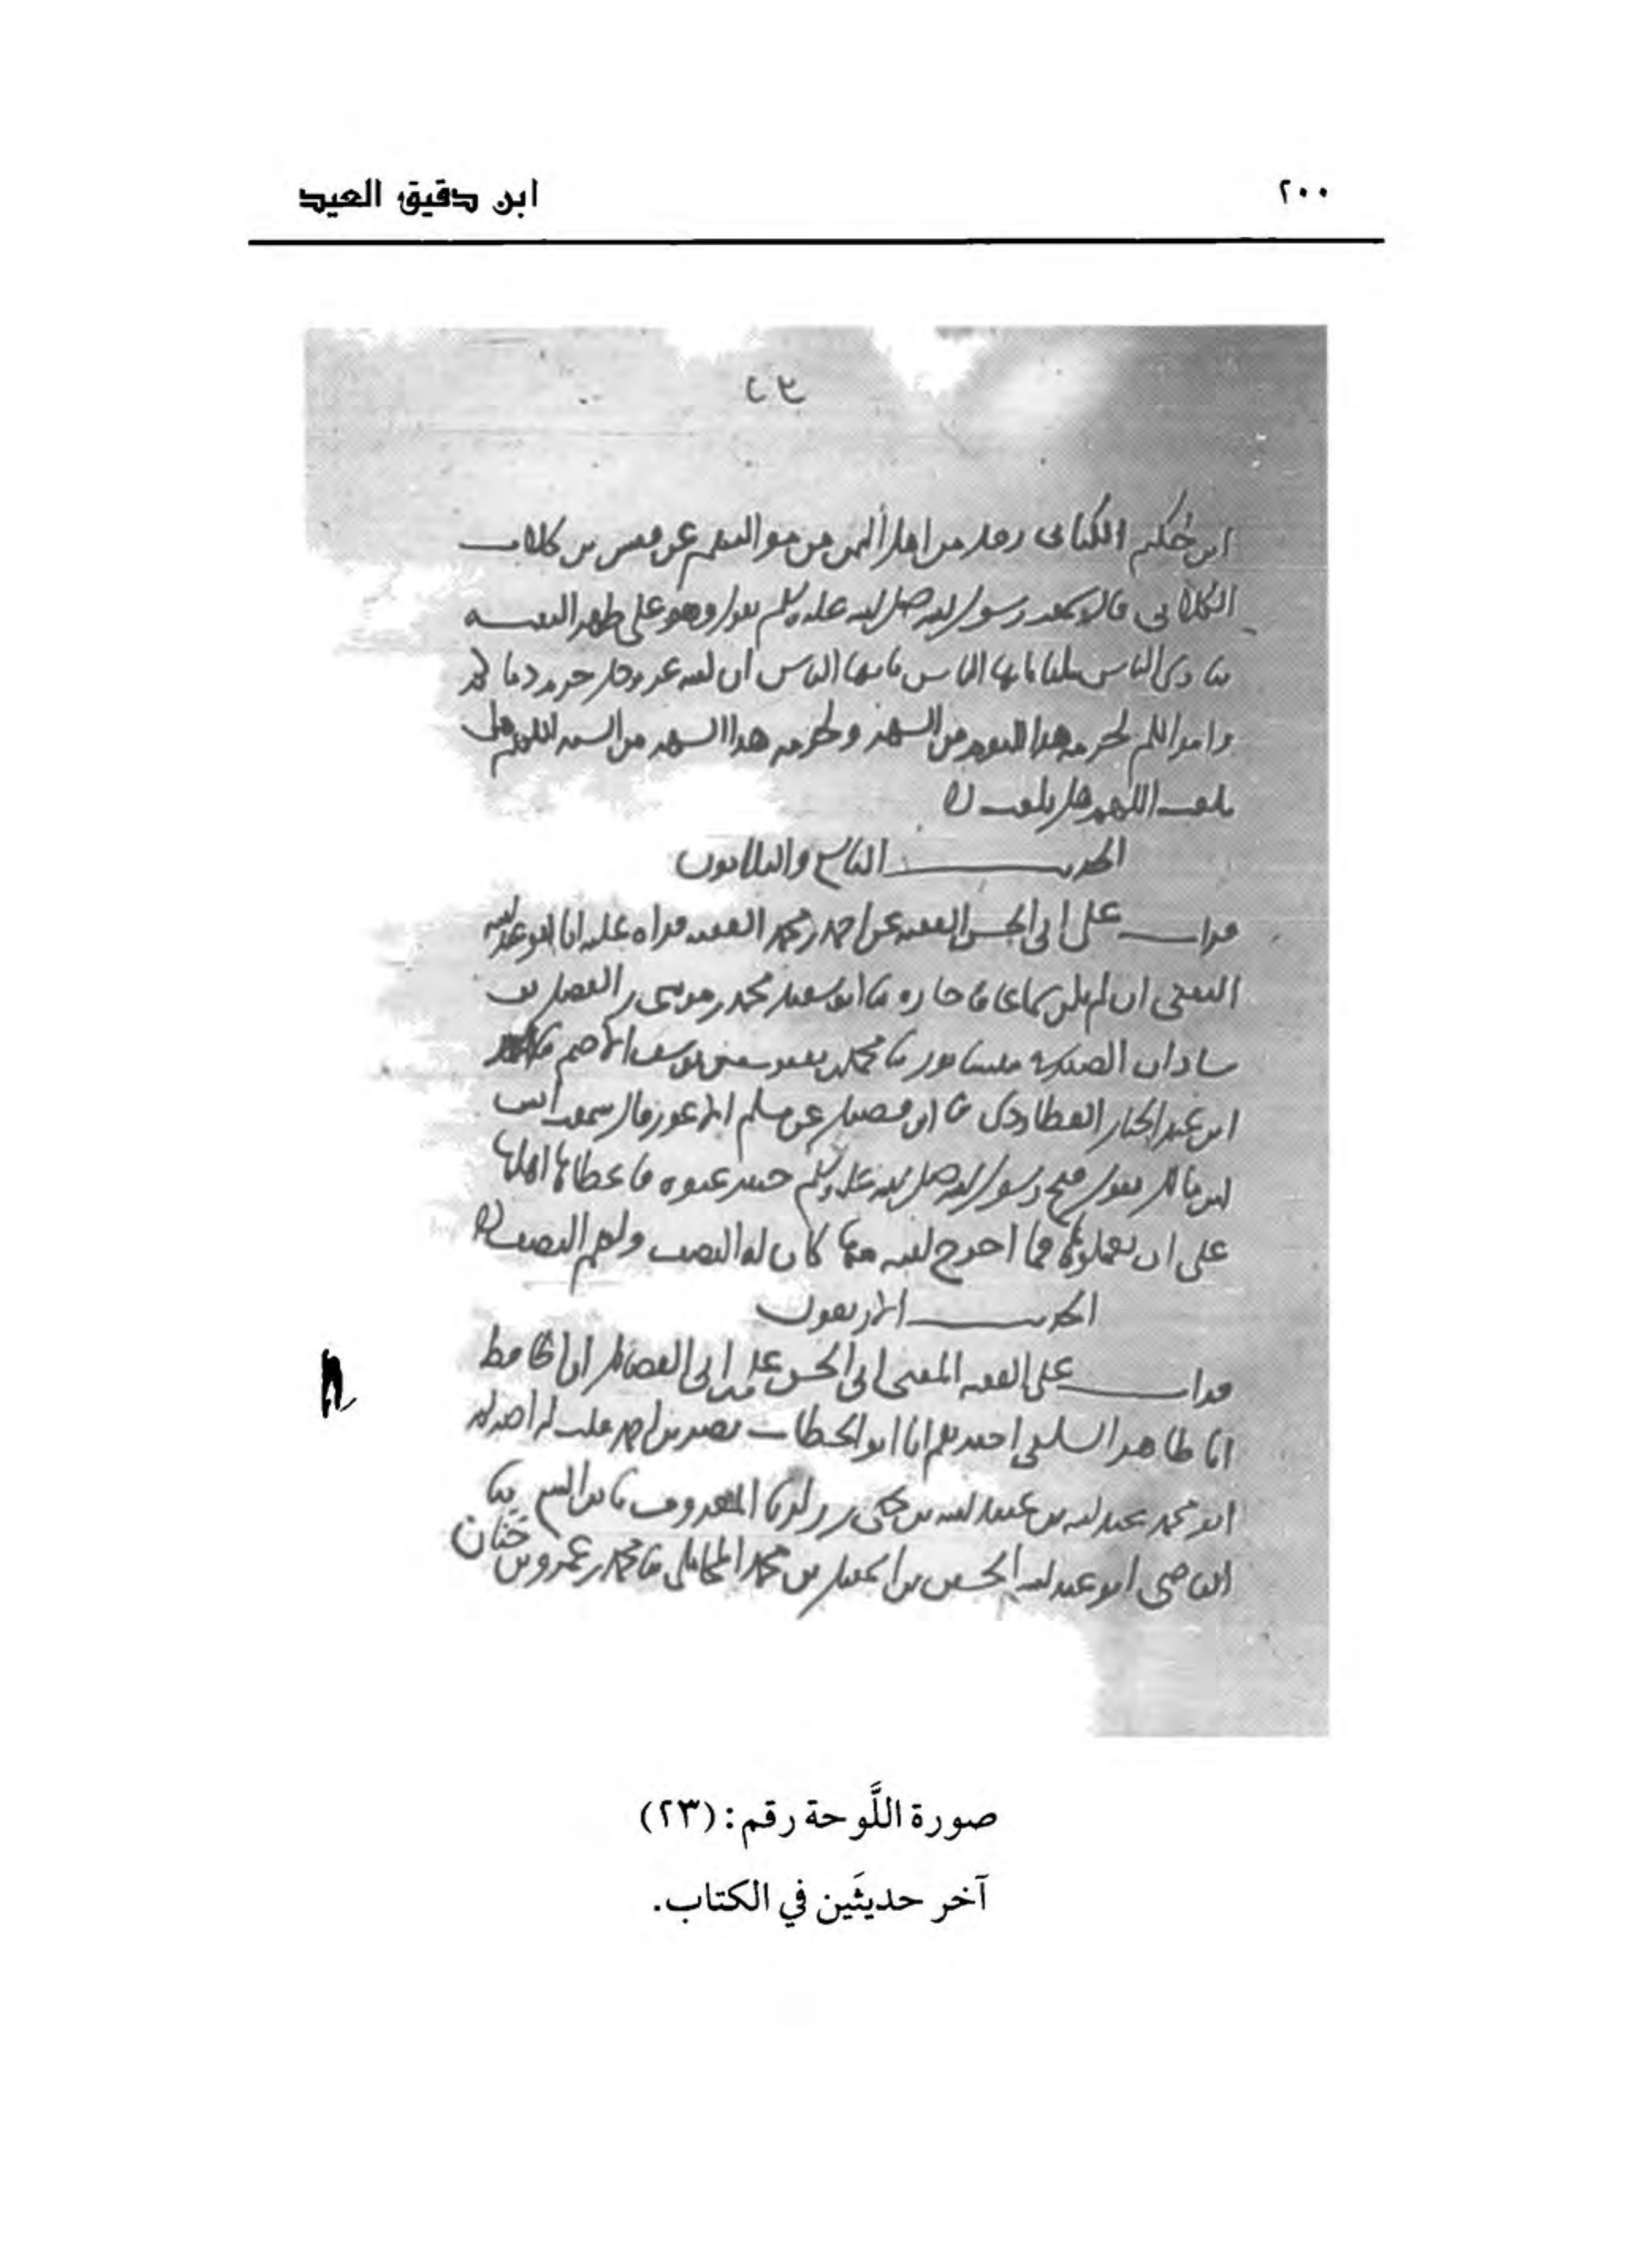 ٢٠٠
ابن دقيق العيد
٢٣
ابن حكيم الكناني رجل من اهل اليمن من مواليهم عن قيس بن كلاب
الكلابي قال سمعت رسول الله صلى الله عليه وسلم يقول وهو على ظهر
ينادي الناس يا ايها الناس يا ايها الناس ان الله عز وجل حرم دماكم
واموالكم كحرمة هذا اليوم من الشهر وكحرمة هذا الشهر من السنة اللهم هل
بلغت اللهم هل بلغت
الحديث التاسع والثلاثون
قرات على ابي الحسن الفقيه عن احمد بن محمد الفقيه قراءة عليه انا ابو عبد الله
الثقفي ان لم يكن سماعا فاجازة ثنا ابو سعيد محمد بن موسى بن الفضل بن
شاذان الصيرفي بنيسابور ثنا محمد بن يعقوب بن يوسف الاصم ثنا احمد
ابن عبد الجبار العطاردي ثنا ابن فضيل عن مسلم الاعور قال سمعت انس
ابن مالك يقول فتح رسول الله صلى الله عليه وسلم خيبر عنوة فاعطاها اهلها
على ان يعملوها فما اخرج الله منها كان له النصف ولهم النصف
الحديث الاربعون
قرات على الفقيه المفتي ابي الحسن علي بن ابي الفضائل انا الحافظ
ابا طاهر السلفي اخبرهم انا ابو الخطاب نصر بن احمد
ابو محمد عبد الله بن عبيد الله بن يحيى بن زكريا المعروف بابن البيع ثنا
القاضي ابو عبد الله الحسين بن اسمعيل بن محمد المحاملي ثنا محمد بن عمرو بن حنان
صورة اللَّوحة رقم: (٢٣)
آخر حديثَين في الكتاب.